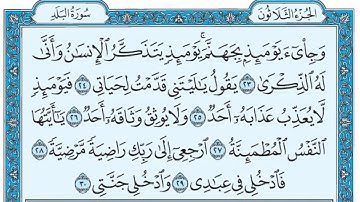 الجزء الثلاثون
سورة البلد
وَجِا۟ىٓءَ يَوْمَئِذٍۭ بِجَهَنَّمَ ۚ يَوْمَئِذٍ يَتَذَكَّرُ ٱلْإِنسَٰنُ وَأَنَّىٰ
لَهُ ٱلذِّكْرَىٰ ٢٣ يَقُولُ يَٰلَيْتَنِى قَدَّمْتُ لِحَيَاتِى ٢٤ فَيَوْمَئِذٍ
لَّا يُعَذِّبُ عَذَابَهُۥٓ أَحَدٌ ٢٥ وَلَا يُوثِقُ وَثَاقَهُۥٓ أَحَدٌ ٢٦ يَٰٓأَيَّتُهَا
ٱلنَّفْسُ ٱلْمُطْمَئِنَّةُ ٢٧ ٱرْجِعِىٓ إِلَىٰ رَبِّكِ رَاضِيَةً مَّرْضِيَّةً ٢٨
فَٱدْخُلِى فِى عِبَٰدِى ٢٩ وَٱدْخُلِى جَنَّتِى ٣٠